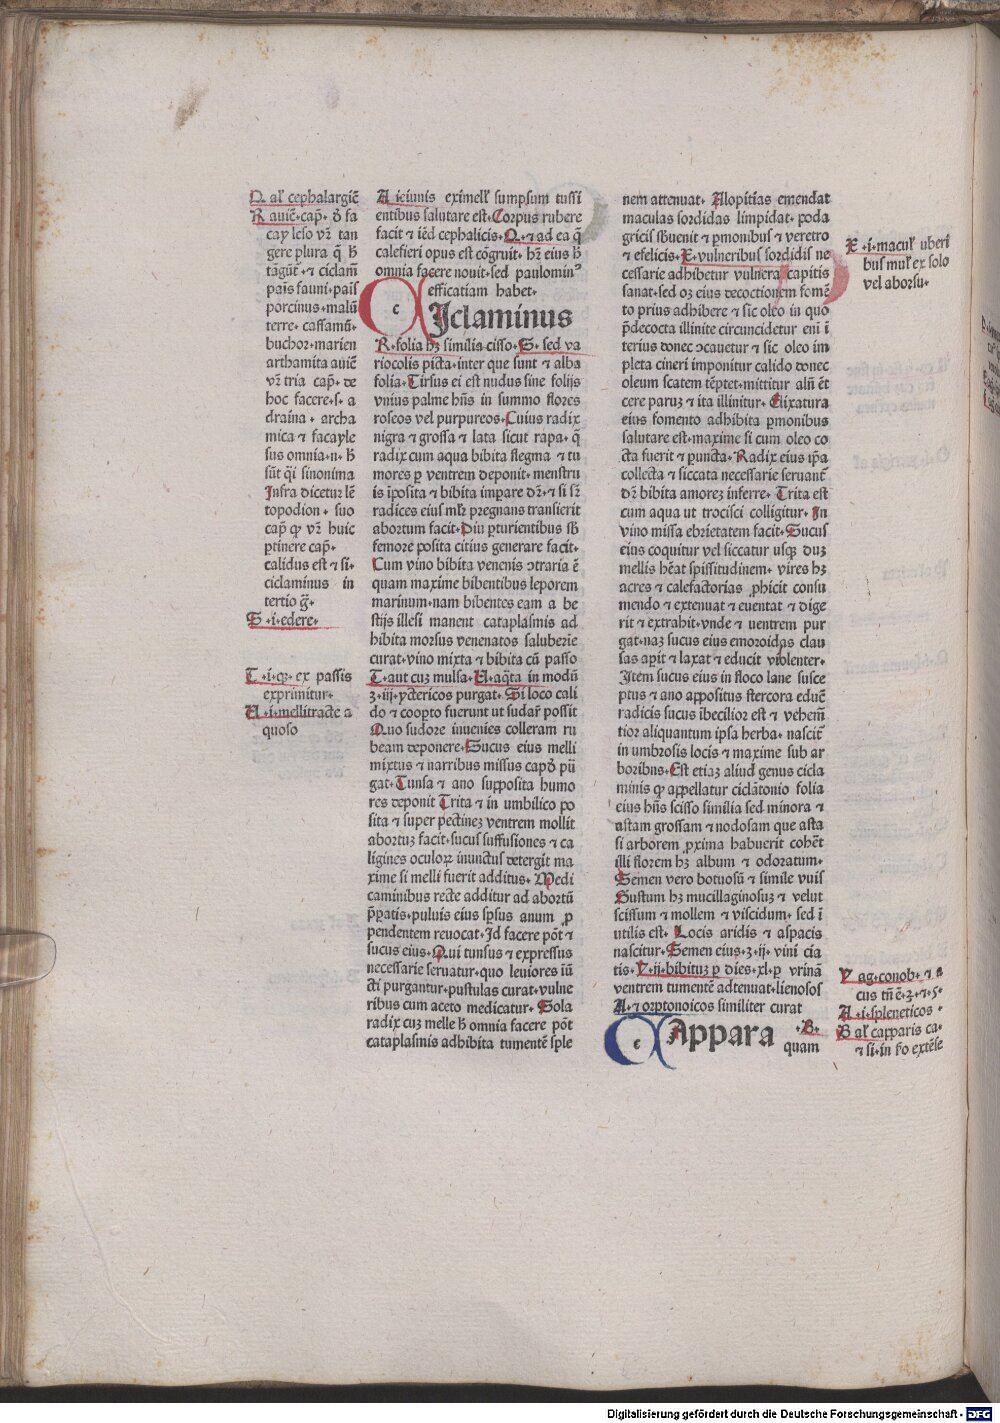 Q al' cephalargiẽ
R auiẽ· cap̃· ð fa
cay leso vr̃ tan
gere plura q̃ h̃
tãgũt· ⁊ ciclam̃
pais fauni· pais
porcinus· malũ
terre· cassamũ·
buchor· marien
arthamita auiẽ
vr̃ tria cap̃· de
hoc facere· s· a
draina· archa
mica ⁊ facayle
sus omnia· n· h̃
sũt q̃i sinonima
Infra dicetur lẽ
topodion· suo
cap̃ ꝙ vr̃ huic
ptinere cap̃·
calidus est ⁊ si·
ciclaminus in
tertio g̃·
S ·i· edere·
T ·i· qꝫ ex passis
exprimitur·
U ·i· mellitracte a
quoso
A ieiunis eximell' sumpsum tussi
entibus salutare est· Corpus rubere
facit ⁊ iẽd cephalicis· Q· ⁊ ad ea q̃
calefieri opus est cõgruit· hr̃ eius h̃
omnia facere nouit· sed paulomin⁹
efficatiam habet·
c Iclaminus
R· folia hꝫ similia cisso· S· sed va
riocolis picta· inter que sunt ⁊ alba
folia· Tirsus ei est nudus sine folijs
vnius palme hñs in summo flores
roseos vel purpureos· Cuius radix
nigra ⁊ grossa ⁊ lata sicut rapa· q̃
radix cum aqua bibita flegma ⁊ tu
mores ꝑ ventrem deponit· menstru
is ĩposita ⁊ bibita impare dr̃· ⁊ si sr̃
radices eius mlr̃ pregnans transierit
abortum facit· Diu ꝑturientibus sb̃
femore posita citius generare facit·
Cum vino bibita venenis ↄtraria ẽ
quam maxime bibentibus leporem
marinum· nam bibentes eam a be
stijs illesi manent cataplasmis ad
hibita morsus venenatos saluberie
curat· vino mixta ⁊ bibita cũ passo
T· aut cuꝫ mulsa· U· aq̃ta in modũ
ʒ· iij· yctericos purgat· Si loco cali
do ⁊ coopto fuerunt ut sudar̃ possit
Quo sudore inuenies colleram ru
beam deponere· Sucus eius melli
mixtus ⁊ narribus missus capð pũ
gat· Tunsa ⁊ ano supposita humo
res deponit Trita ⁊ in umbilico po
sita ⁊ super pectineꝫ ventrem mollit
abortuꝫ facit· sucus suffusiones ⁊ ca
ligines oculoꝝ inunctus detergit ma
xime si melli fuerit additus· Medi
caminibus recte additur ad abortũ
p̃ꝑatis· puluis eius spsus anum ꝓ
pendentem reuocat· Id facere põt ⁊
sucus eius· Qui tunsus ⁊ expressus
necessarie seruatur· quo leuiores iũ
cti purgantur· pustulas curat· vulne
ribus cum aceto medicatur· Sola
radix cuꝫ melle h̃ omnia facere põt
cataplasmis adhibita tumentẽ sple
nem attenuat· Alopitias emendat
maculas sordidas limpidat· poda
gricis sbuenit ⁊ ꝑmonibus ⁊ veretro
⁊ efelicis· E· vulneribus sordidis ne
cessarie adhibetur vulnera capitis
sanat· sed oꝫ eius decoctionem fomẽ
to prius adhibere ⁊ sic oleo in quo
p̃decocta illinite circuncidetur eni ĩ
terius donec ↄcauetur ⁊ sic oleo im
pleta cineri imponitur calido donec
oleum scatem tẽptet· mittitur alñ ẽt
cere paruꝫ ⁊ ita illinitur· Elixatura
eius fomento adhibita ꝑmonibus
salutare est· maxime si cum oleo co
cta fuerit ⁊ ꝑuncta· Radix eius ip̃a
collecta ⁊ siccata necessarie seruant̃
dr̃ bibita amoreꝫ inferre· Trita est
cum aqua ut trocisci colligitur· In
vino missa ebrietatem facit· Sucus
eius coquitur vel siccatur usqꝫ duꝫ
mellis hẽat spissitudinem· vires hꝫ
acres ⁊ calefactorias ꝓhicit consu
mendo ⁊ extenuat ⁊ euentat ⁊ dige
rit ⁊ extrahit· vnde ⁊ uentrem pur
gat· naꝫ sucus eius emoroidas clau
sas aꝑit ⁊ laxat ⁊ educit violenter·
Item sucus eius in floco lane susce
ptus ⁊ ano appositus stercora eduẽ
radicis sucus ĩbecilior est ⁊ vehem̃
tior aliquantum ipsa herba· nascit̃
in umbrosis locis ⁊ maxime sub ar
boribus· Est etiaꝫ aliud genus cicla
minis ꝙ appellatur ciclãtonio folia
eius hñs scisso similia sed minora ⁊
astam grossam ⁊ nodosam que asta
si arborem ꝓxima habuerit cohẽt
illi florem hꝫ album ⁊ odoratum·
Semen vero botuosũ ⁊ simile vuis
Gustum hꝫ mucillaginosuꝫ ⁊ velut
scissum ⁊ mollem ⁊ viscidum· sed ĩ
utilis est· Locis aridis ⁊ aspacis
nascitur· Semen eius· ʒ· ij· vini cia
tis· V· ij· bibituꝫ ꝑ dies· xl· ꝑ vrinã
ventrem tumentẽ adtenuat· lienosos
A· ⁊ orptonoicos similiter curat
c Appara ·B·
quam
E ·i· macul' uberi
bus mul' ex solo
vel aborsu·
V ag· conob· ⁊ a
cus tm̃ ẽ· ʒ· ⁊· 5·
A ·i· spleneticos ·
B al' capparis ca·
⁊ si· in fi'o extẽse
Digitalisierung gefördert durch die Deutsche Forschungsgemeinschaft - DFG